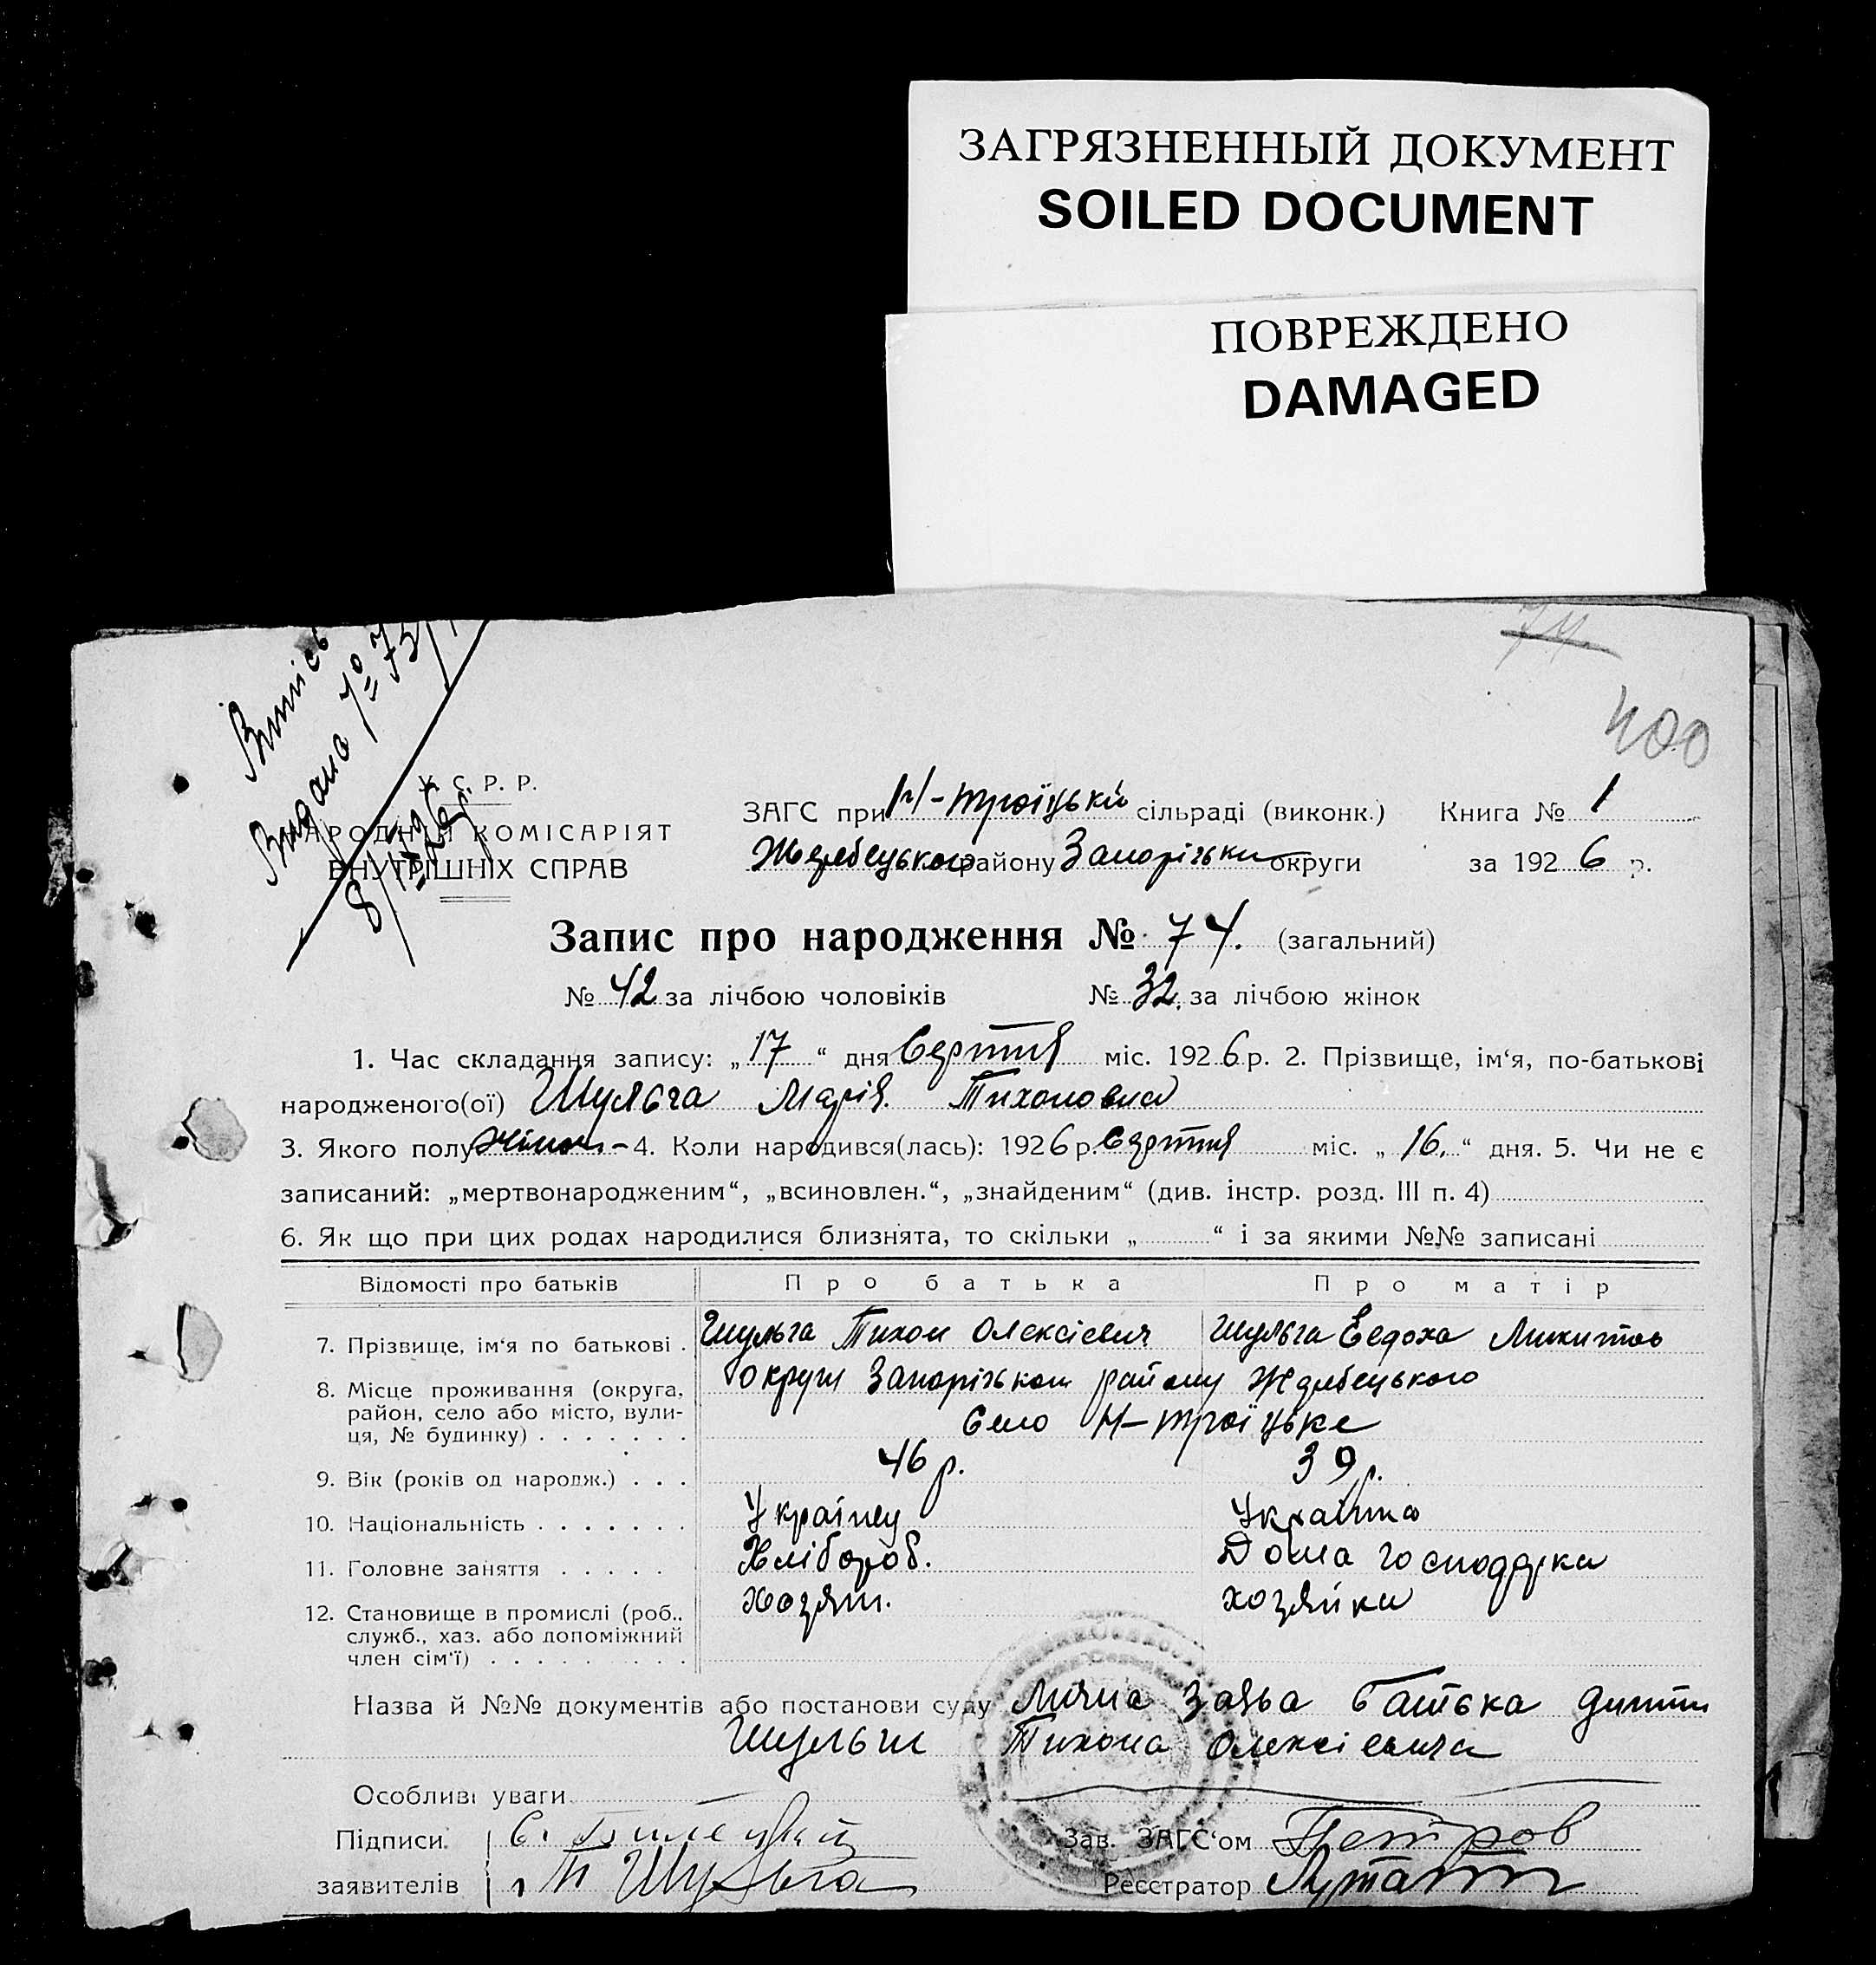 ЗАГРЯЗНЕННЫЙ ДОКУМЕНТ
SOILED DOCUMENT
ПОВРЕЖДЕНО
DAMAGED
74
400
Видано
У. С. Р. Р.
НАРОДНІЙ КОМІСАРІЯТ
ВНУТРІШНІХ СПРАВ
ЗАГС при Н-Троїцькій сільраді (виконк.) Книга № 1
Жеребецького району Запорізьки округи за 1926 р.
Запис про народження № 74. (загальний)
№ 42 за лічбою чоловіків № 32. за лічбою жінок
1. Час складання запису: „17“ дня Серпня міс. 1926 р. 2. Прізвище, ім‘я, по-батькові
народженого(ої) Шульга Марія Тихоновна
3. Якого полу жіноч.- 4. Коли народився(лась): 1926 р. Серпня міс. „16.“ дня. 5. Чи не є
записаний: „мертвонародженим“, „всиновлен.“, „знайденим“ (див. інстр. розд. III п. 4)
6. Як що при цих родах народилися близнята, то скільки „ “ і за якими №№ записані
Відомості про батьків Про батька Про матір
7. Прізвище, ім‘я по батькові . Шульга Тихон Олексієвич Шульга Евдоха Микитов
8. Місце проживання (округа, округи Запорізькой району Жеребецького
район, село або місто, вули-
ця, № будинку) . . . . . . . Село Н-Троїцьке
9. Вік (років од народж.) . . . 46 р. 39 р.
10. Національність . . . . . . . Українец Українка
11. Головне заняття . . . . . Хлібороб. Дома господарка
12. Становище в промислі (роб., Хозяин. хозяйка
служб., хаз. або допоміжний
член сім‘ї) . . . . . . . . .
Назва й №№ документів або постанови суду заява батька
Шульги Тихона Олексієвича
Особливі уваги
Підписи С. Зав. ЗАГС‘ом Петров
заявителів Т Шульга Реєстратор